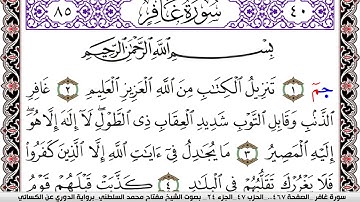 ٤٠ سُورَةُ غَافِرٍ ٨٥
بِسْمِ اللَّهِ الرَّحْمَٰنِ الرَّحِيمِ
حمٓ ١ تَنزِيلُ الْكِتَابِ مِنَ اللَّهِ الْعَزِيزِ الْعَلِيمِ ٢ غَافِرِ
الذَّنۢبِ وَقَابِلِ التَّوْبِ شَدِيدِ الْعِقَابِ ذِى الطَّوْلِ لَا إِلَٰهَ إِلَّا هُوَ
إِلَيْهِ الْمَصِيرُ ٣ مَا يُجَادِلُ فِىٓ ءَايَاتِ اللَّهِ إِلَّا الَّذِينَ كَفَرُوا
فَلَا يَغْرُرْكَ تَقَلُّبُهُمْ فِى الْبِلَادِ ٤ كَذَّبَتْ قَبْلَهُمْ قَوْمُ
سورة غافر الصفحة ٤٦٧.. الحزب ٤٧ الجزء ٢٤.. بصوت الشيخ مفتاح محمد السلطني برواية الدوري عن الكسائي